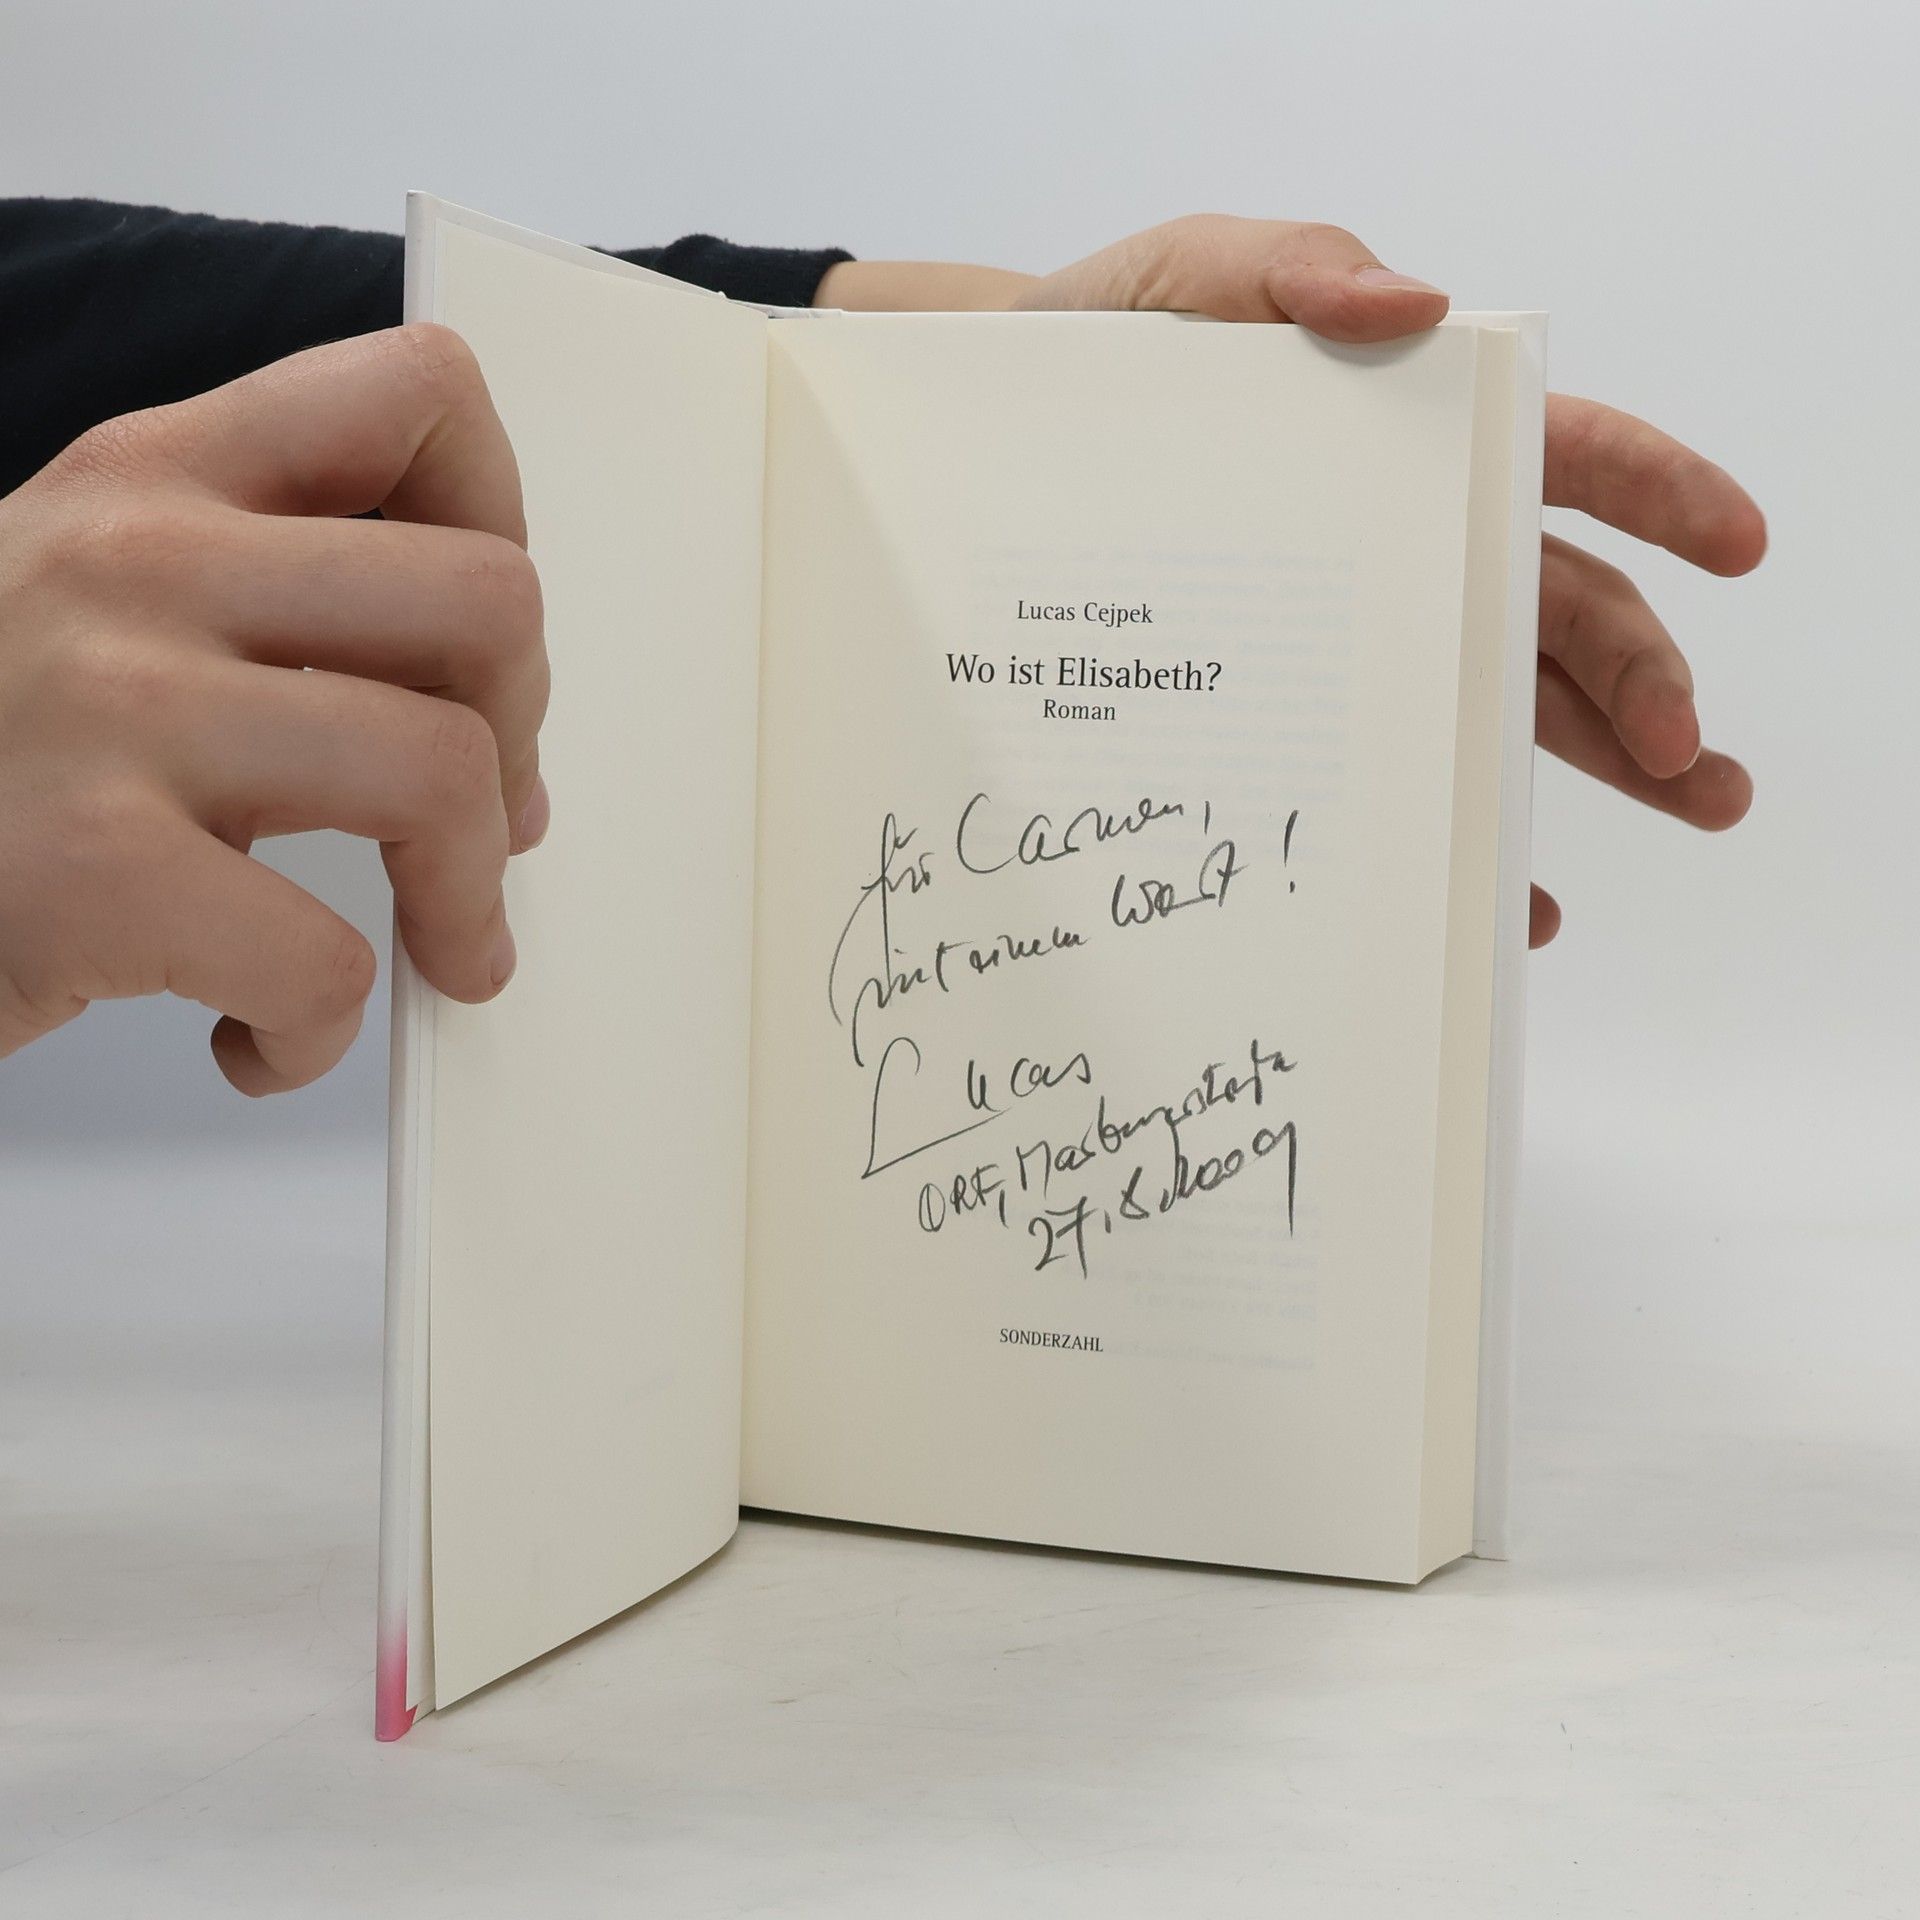 Lucas Cejpek
Wo ist Elisabeth?
Roman
für Carmen,
mit einem Wort!
Lucas
ORF, Marburgerstraße
27.8.2009
SONDERZAHL